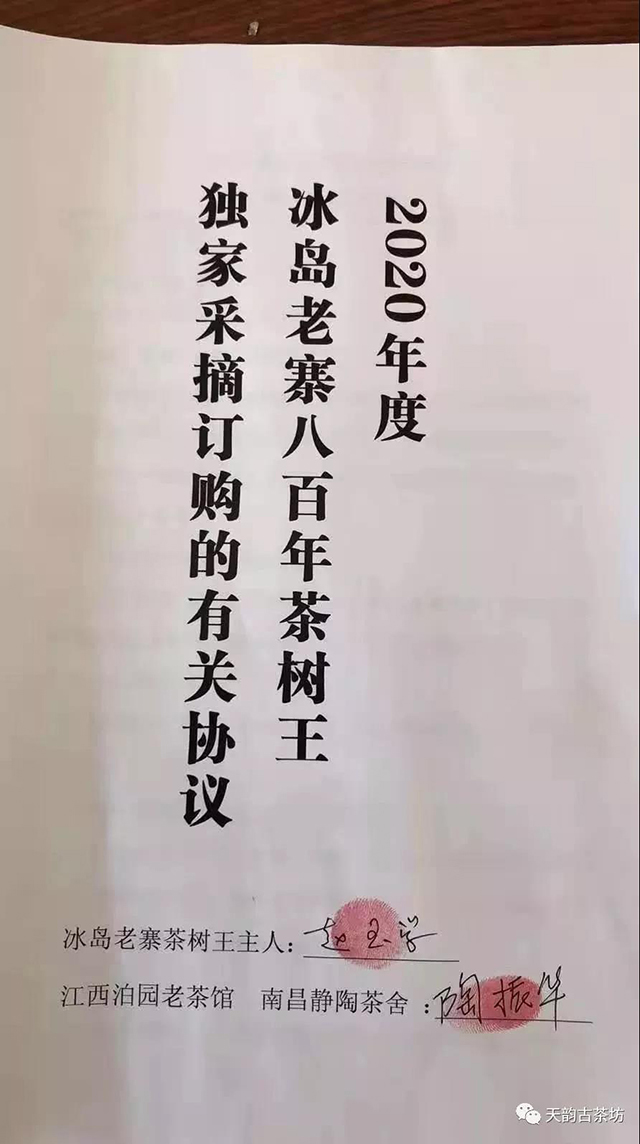 2020年度
冰岛老寨八百年茶树王
独家采摘订购的有关协议
冰岛老寨茶树王主人：赵玉学
江西泊园老茶馆 南昌静陶茶舍：陶振华
天韵古茶坊